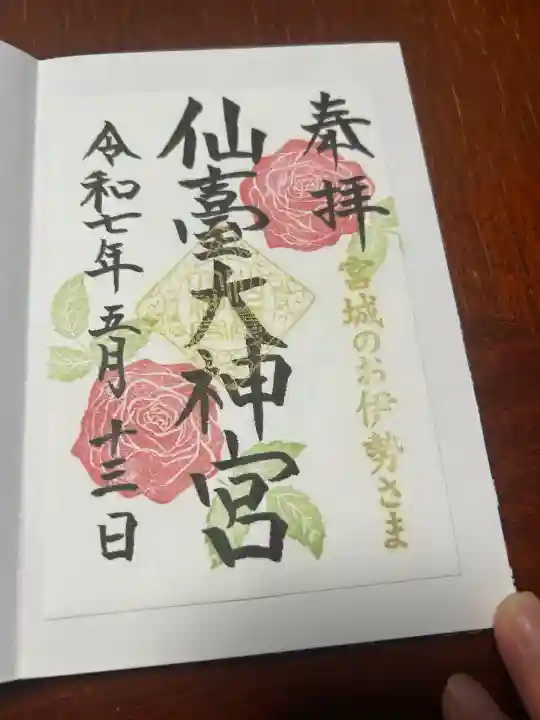 奉拝
宮城のお伊勢さま
仙臺大神宮
令和七年五月十三日